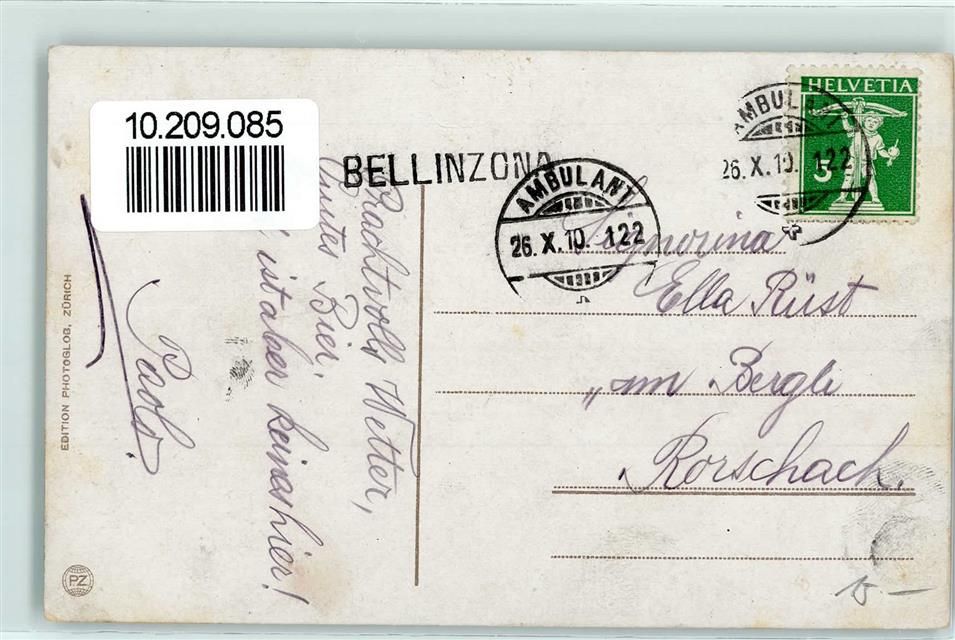 10.209.085
BELLINZONA
AMBULANT
26. X. 10. 122
AMBULANT
26. X. 10. 122
HELVETIA
5
Prachtvolles Wetter,
Gutes Bier,
ist aber keines hier!
Paolo.
Signorina
Ella Rüst
„am Bergli
Rorschach.
EDITION PHOTOGLOB, ZÜRICH
PZ